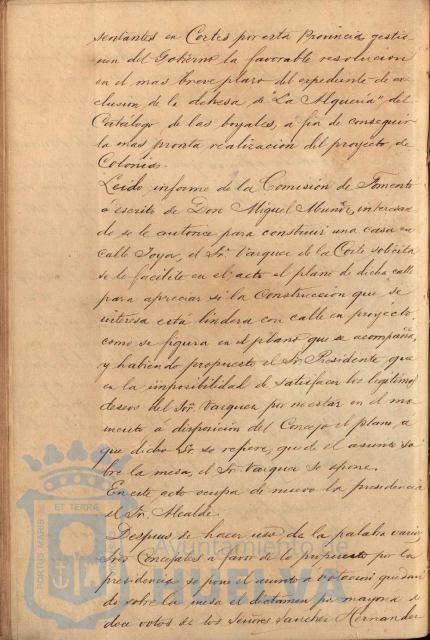 sentantes en Cortes por esta Provincia, gestio
nen del Gobierno la favorable resolucion
en el mas breve plazo del expediente de ex
clusion de la dehesa de "La Alqueria" del
Catálogo de las boyales, a fin de conseguir
la mas pronta realizacion del proyecto de
Colonia.
Leido informe de la Comisión de Fomento
á escrito de Don Miguel Muñoz, interesan
do se le autorice para construir una casa en
calle Joya, el Sr. Vazquez de la Corte solicita
se le facilite en el acto el plano de dicha calle
para apreciar si la Construccion que se
interesa está lindera con calle en proyecto
como se figura en el plano que se acompaña,
y habiendo propuesto el Sr. Presidente que
en la imposibilidad de satisfacer los legitimos
deseos del Sor. Vazquez por no estar en el mo
mento á disposicion del Concejo el plano, a
que dicho Sr. se refiere, quede el asunto so
bre la mesa, el Sr. Vazquez se opone.
En este acto ocupa de nuevo la presidencia
el Sr. Alcalde.
Despues de hacer uso de la palabra varios
Sres Concejales á favor de lo propuesto por la
presidencia se pone el asunto a votacion quedan
do sobre la mesa el dictamen por mayoria de
doce votos de los Señores Sanchez Hernandez
PORTUS MARIS ET TERRAE
Ayuntamiento de
HUELVA